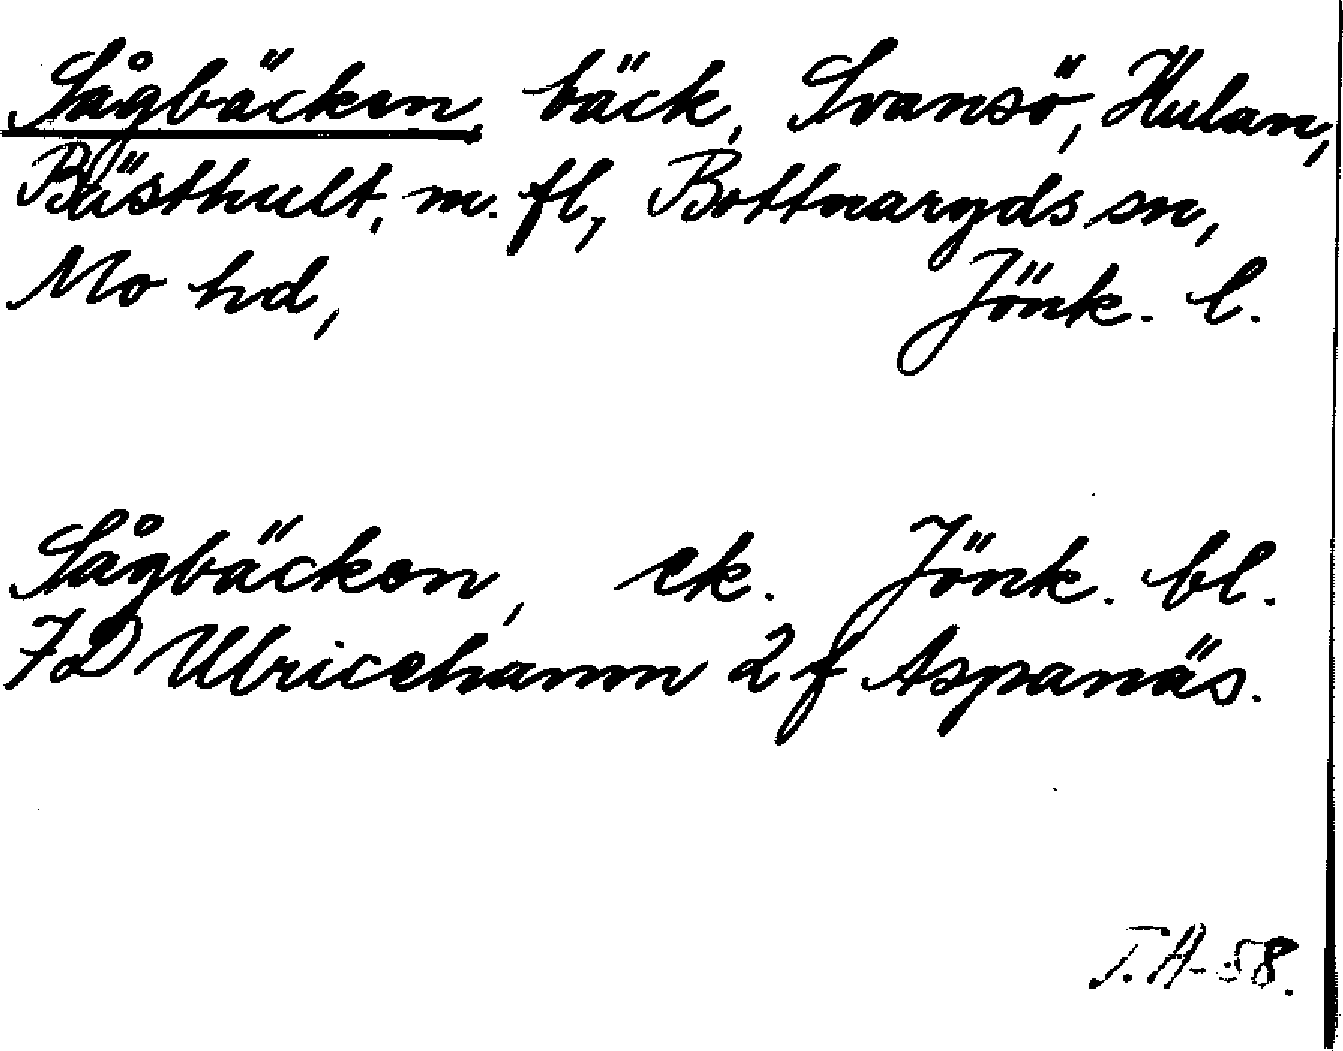 Sågbäcken, bäck, Svansö, Hulan,
Bästhult, m. fl, Bottnaryds sn,
Mo hd, Jönk. l.
Sågbäcken, ek. Jönk. bl.
7D Ulricehamn 2 f Aspanäs.
T.A-58.